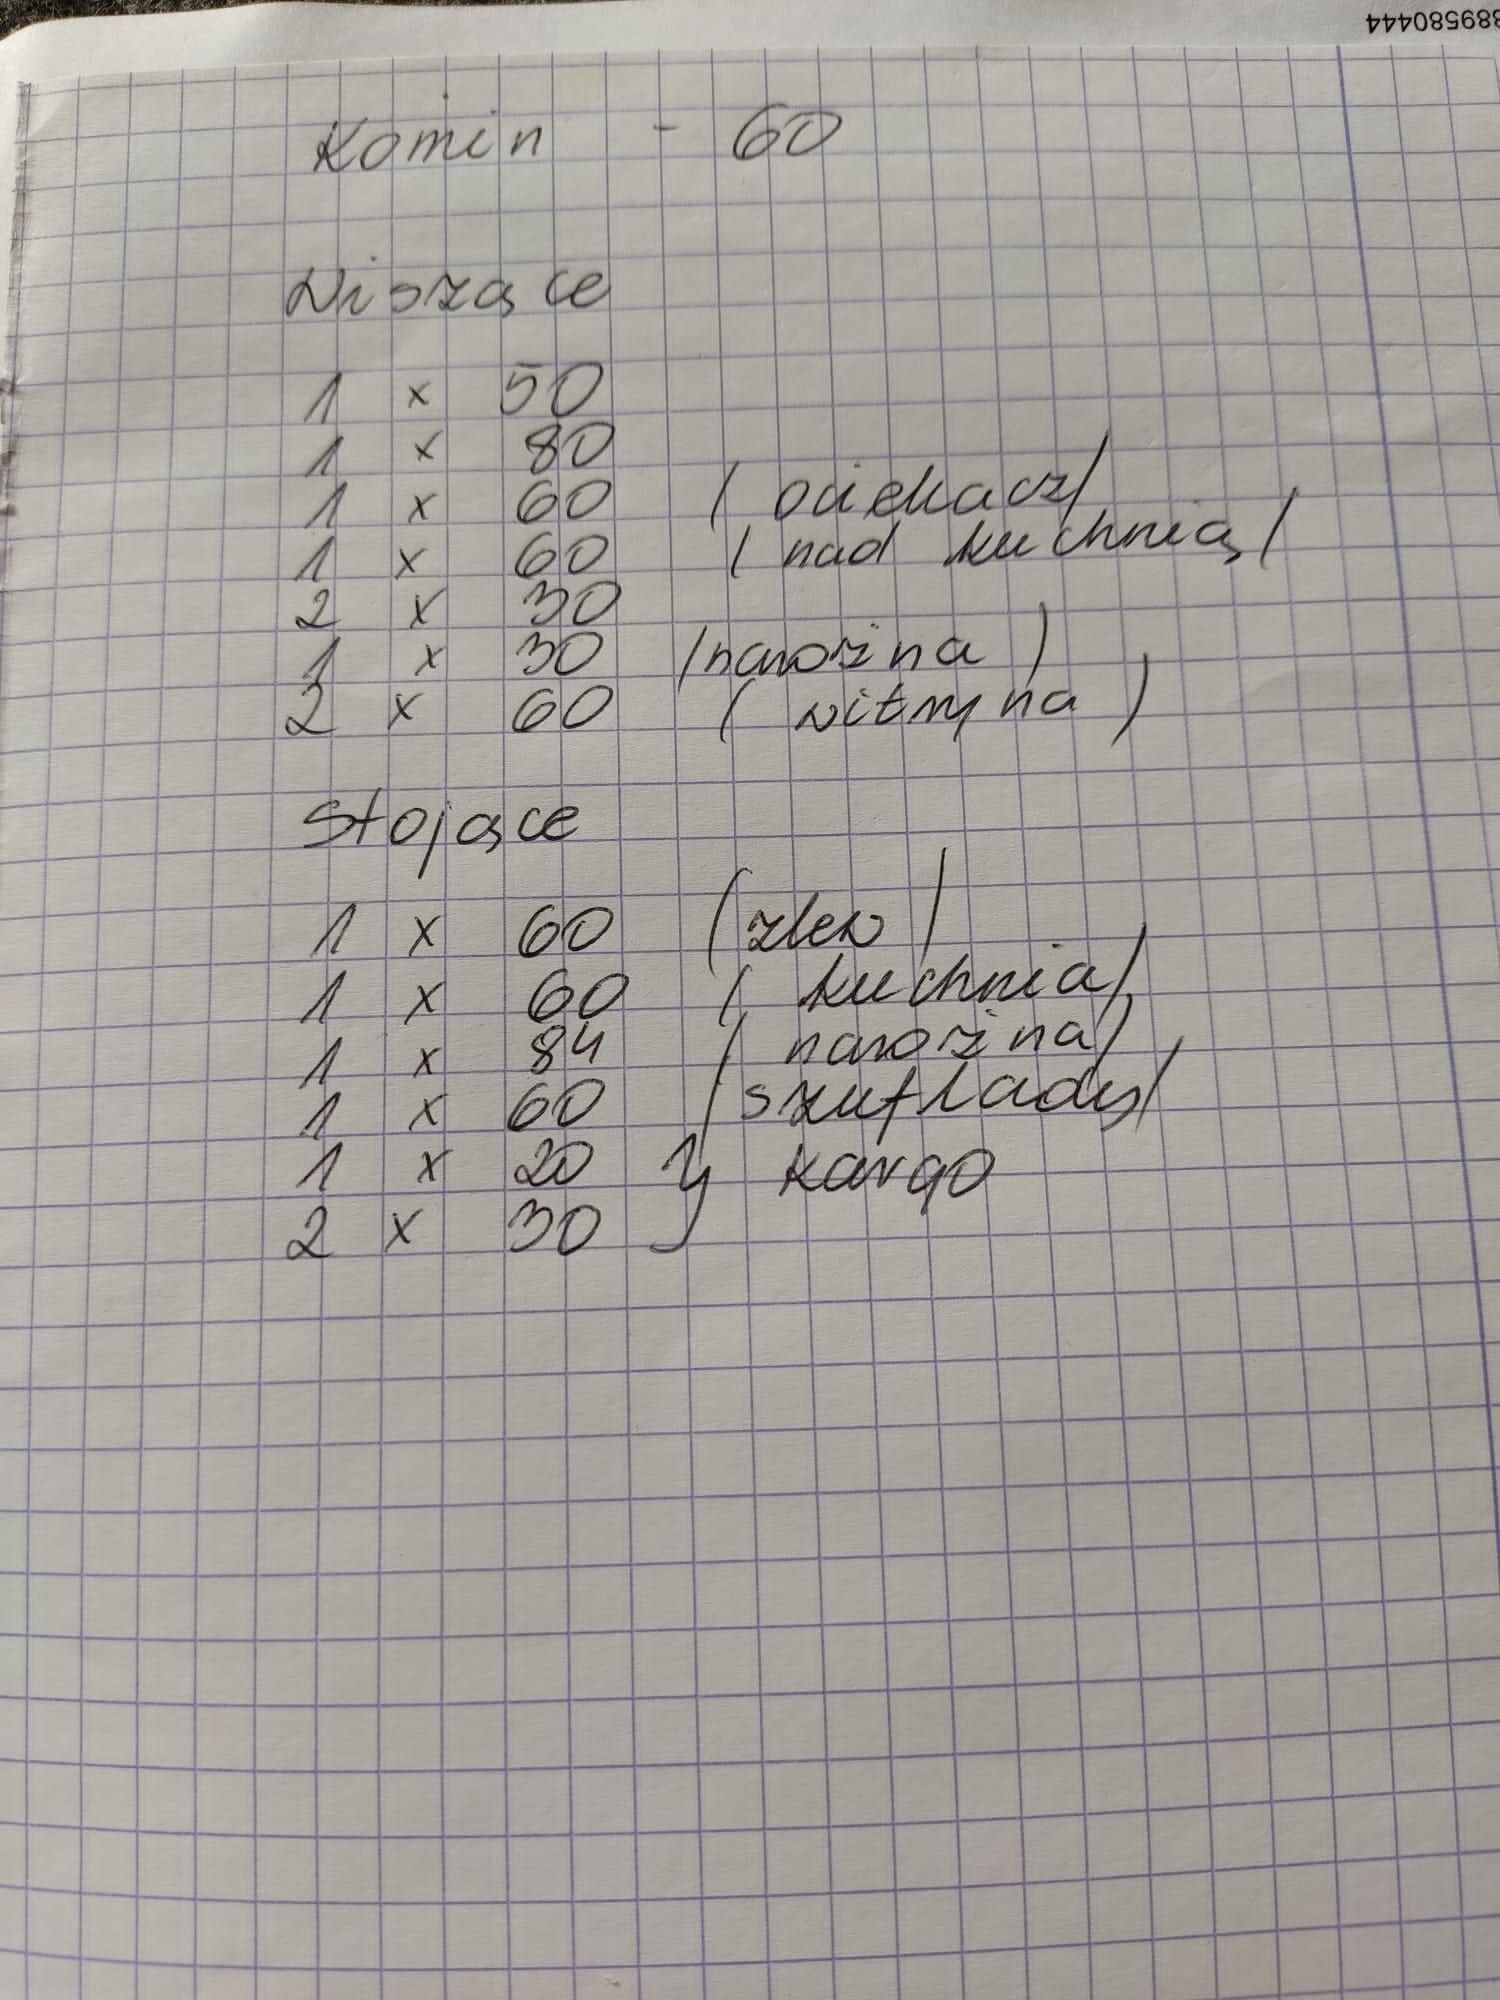 889580444
Komin - 60
Wiszące
1 x 50
1 x 80
1 x 60 (ociekacz)
1 x 60 (nad kuchnią)
2 x 30
1 x 30 (narożna)
2 x 60 (witryna)
Stojące
1 x 60 (zlew)
1 x 60 (kuchnia)
1 x 84 (narożna)
1 x 60 (szuflady)
1 x 20 } kargo
2 x 30